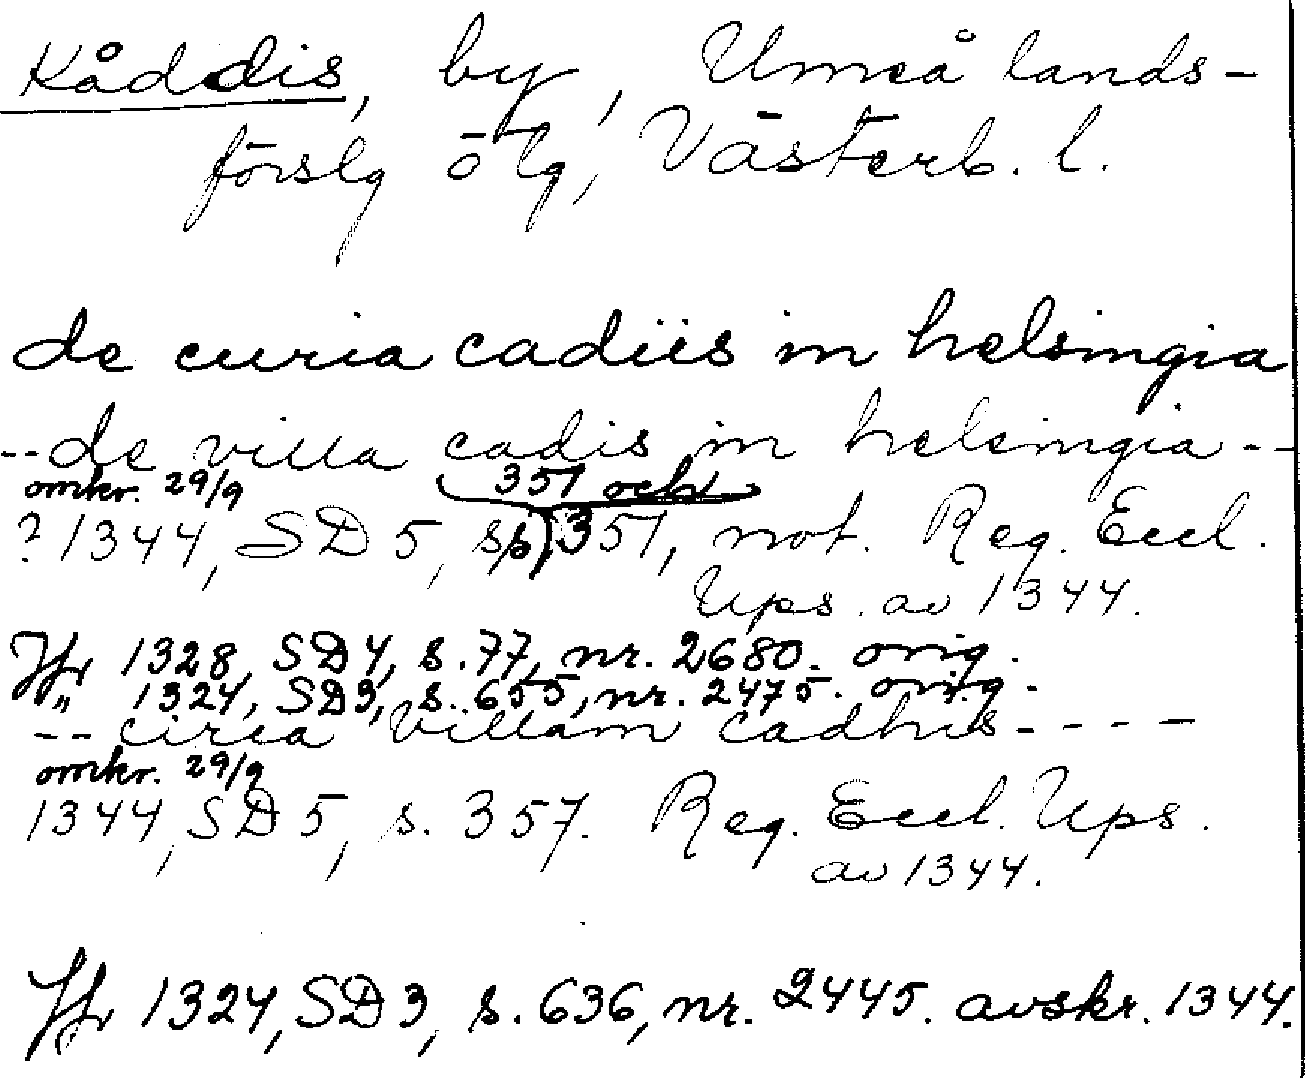 Kåddis, by, Umeå lands-
förslg ölg, Västerb. l.
de curia cadiis in helsingia
--de villa cadis in helsingia--
omkr. 29/9 351 och
? 1344, SD 5, s. 351, not. Reg. Eccl.
Ups. av 1344.
Jfr 1328, SD 4, s. 77, nr. 2680. orig.
" 1324, SD 3, s. 655, nr. 2475. orig.
--circa villam cadhis----
omkr. 29/9
1344, SD 5, s. 357. Reg. Eccl. Ups.
av 1344.
Jfr 1324, SD 3, s. 636, nr. 2445. avskr. 1344.